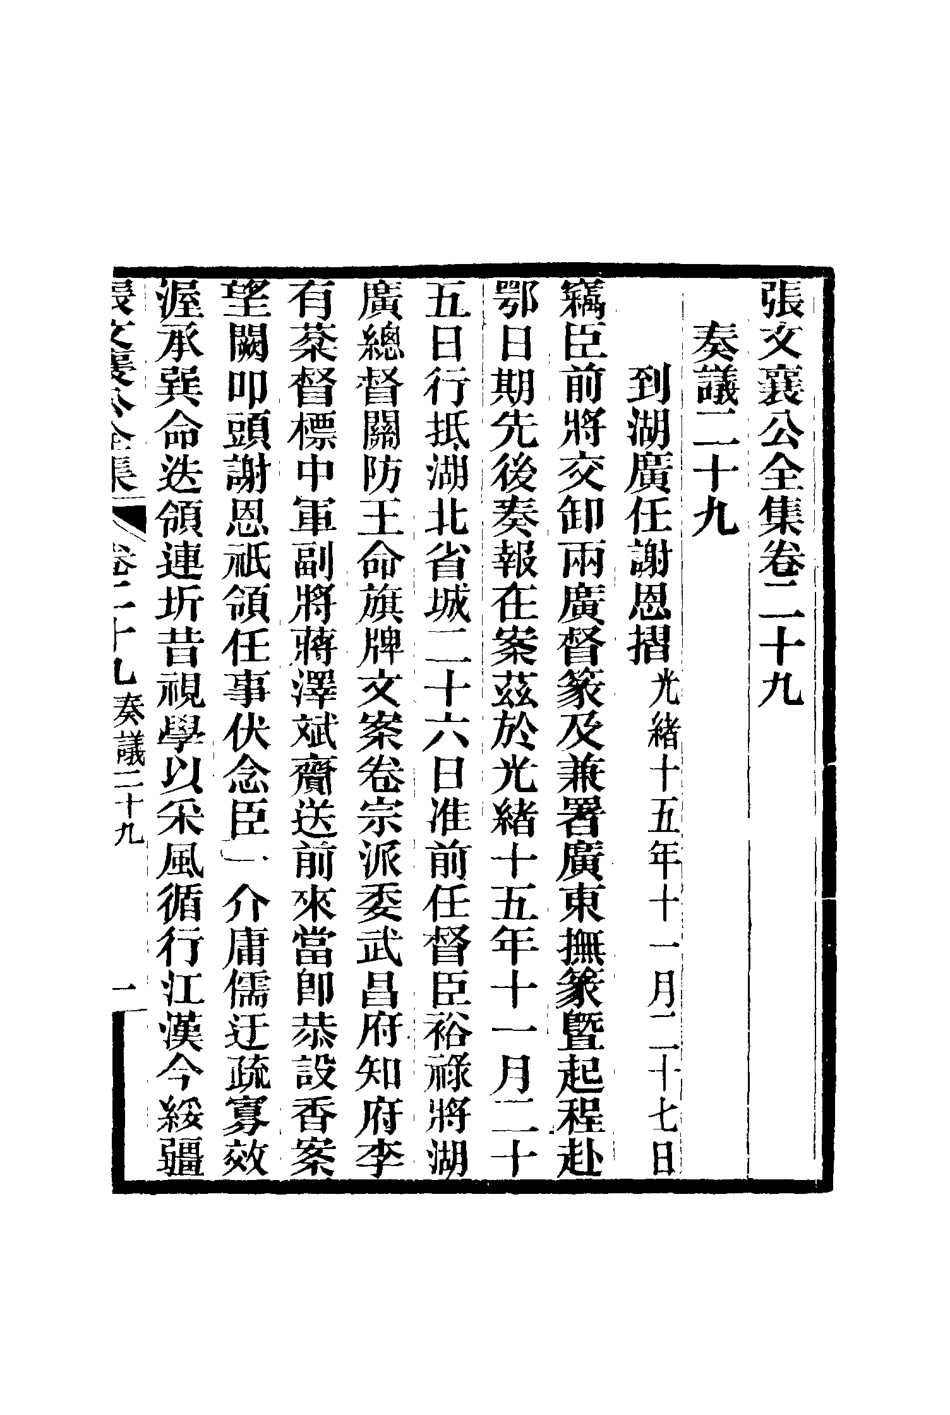 張文襄公全集卷二十九
奏議二十九
到湖廣任謝恩摺光緒十五年十一月二十七日
竊臣前將交卸兩廣督篆及兼署廣東撫篆曁起程赴
鄂日期先後奏報在案茲於光緒十五年十一月二十
五日行抵湖北省城二十六日准前任督臣裕祿將湖
廣總督關防王命旗牌文案卷宗派委武昌府知府李
有棻督標中軍副將蔣澤斌齎送前來當卽恭設香案
望闕叩頭謝恩祇領任事伏念臣一介庸儒迂疏寡效
渥承巽命迭領連圻昔視學以采風循行江漢今綏疆
張文襄公全集 卷二十九 奏議二十九 一